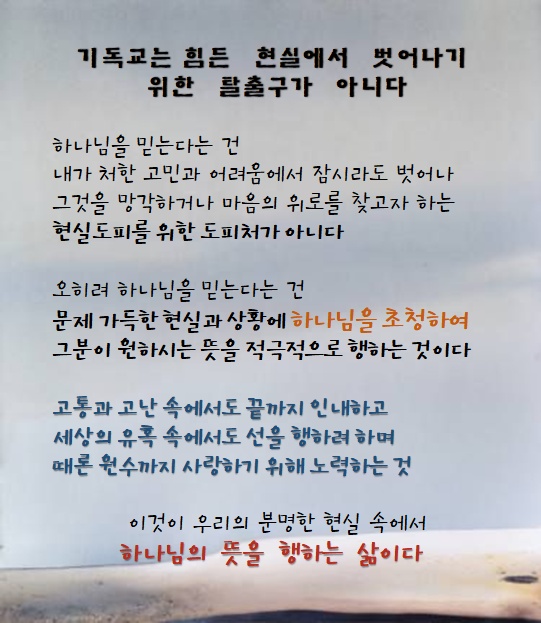 기독교는 힘든 현실에서 벗어나기
위한 탈출구가 아니다
하나님을 믿는다는 건
내가 처한 고민과 어려움에서 잠시라도 벗어나
그것을 망각하거나 마음의 위로를 찾고자 하는
현실도피를 위한 도피처가 아니다
오히려 하나님을 믿는다는 건
문제 가득한 현실과 상황에 하나님을 초청하여
그분이 원하시는 뜻을 적극적으로 행하는 것이다
고통과 고난 속에서도 끝까지 인내하고
세상의 유혹 속에서도 선을 행하려 하며
때론 원수까지 사랑하기 위해 노력하는 것
이것이 우리의 분명한 현실 속에서
하나님의 뜻을 행하는 삶이다